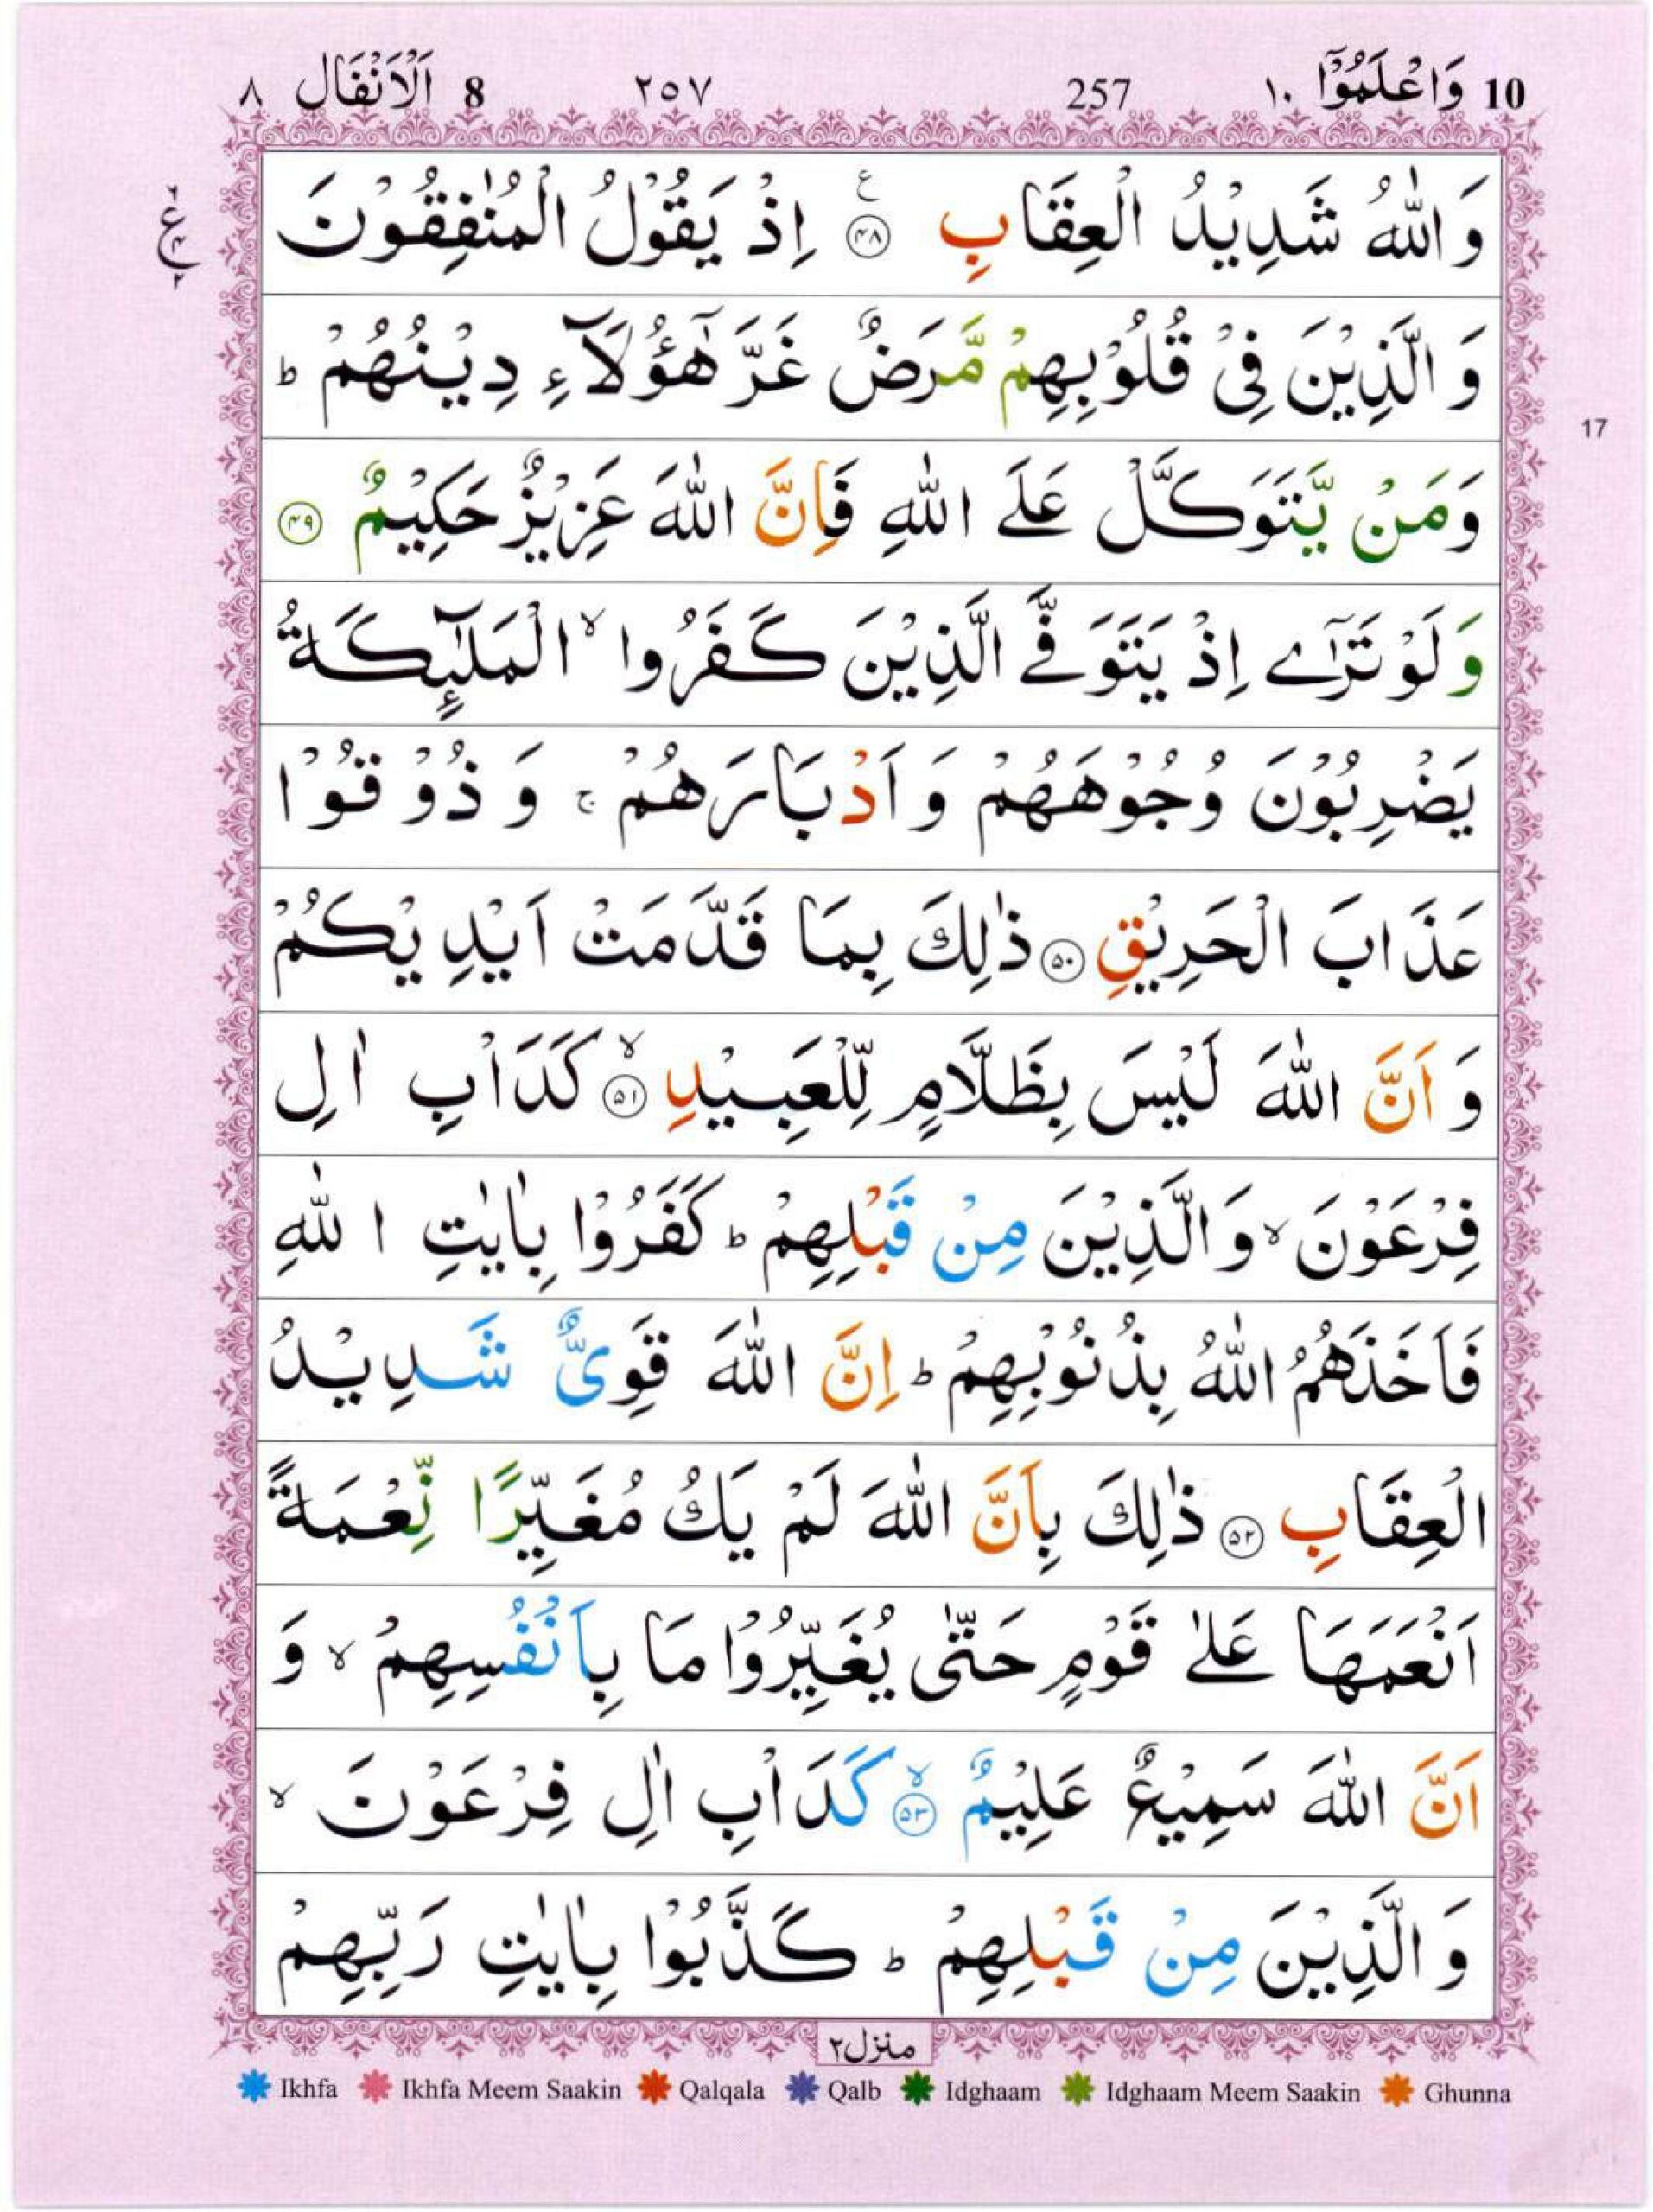 10 وَاعْلَمُوْۤا ١٠ 257 ٢٥٧ 8 اَلْاَنْفَال ٨
وَاللّٰهُ شَدِيْدُ الْعِقَابِ ۝٤٨ ع اِذْ يَقُوْلُ الْمُنٰفِقُوْنَ
وَ الَّذِيْنَ فِیْ قُلُوْبِهِمْ مَّرَضٌ غَرَّ هٰۤؤُلَآءِ دِيْنُهُمْ ؕ
17
وَمَنْ يَّتَوَكَّلْ عَلَی اللّٰهِ فَاِنَّ اللّٰهَ عَزِيْزٌ حَكِيْمٌ ۝٤٩
وَلَوْ تَرٰۤی اِذْ يَتَوَفَّی الَّذِيْنَ كَفَرُوا ۙ الْمَلٰٓئِكَةُ
يَضْرِبُوْنَ وُجُوْهَهُمْ وَ اَدْبَارَهُمْ ۚ وَ ذُوْقُوْا
عَذَابَ الْحَرِيْقِ ۝٥٠ ذٰلِكَ بِمَا قَدَّمَتْ اَيْدِيْكُمْ
وَ اَنَّ اللّٰهَ لَيْسَ بِظَلَّامٍ لِّلْعَبِيْدِ ۝٥١ ۙ كَدَاْبِ اٰلِ
فِرْعَوْنَ ۙ وَ الَّذِيْنَ مِنْ قَبْلِهِمْ ؕ كَفَرُوْا بِاٰيٰتِ اللّٰهِ
فَاَخَذَهُمُ اللّٰهُ بِذُنُوْبِهِمْ ؕ اِنَّ اللّٰهَ قَوِیٌّ شَدِيْدُ
الْعِقَابِ ۝٥٢ ذٰلِكَ بِاَنَّ اللّٰهَ لَمْ يَكُ مُغَيِّرًا نِّعْمَةً
اَنْعَمَهَا عَلٰی قَوْمٍ حَتّٰی يُغَيِّرُوْا مَا بِاَنْفُسِهِمْ ۙ وَ
اَنَّ اللّٰهَ سَمِيْعٌ عَلِيْمٌ ۝٥٣ ۙ كَدَاْبِ اٰلِ فِرْعَوْنَ ۙ
وَ الَّذِيْنَ مِنْ قَبْلِهِمْ ؕ كَذَّبُوْا بِاٰيٰتِ رَبِّهِمْ
منزل٢
Ikhfa Ikhfa Meem Saakin Qalqala Qalb Idghaam Idghaam Meem Saakin Ghunna